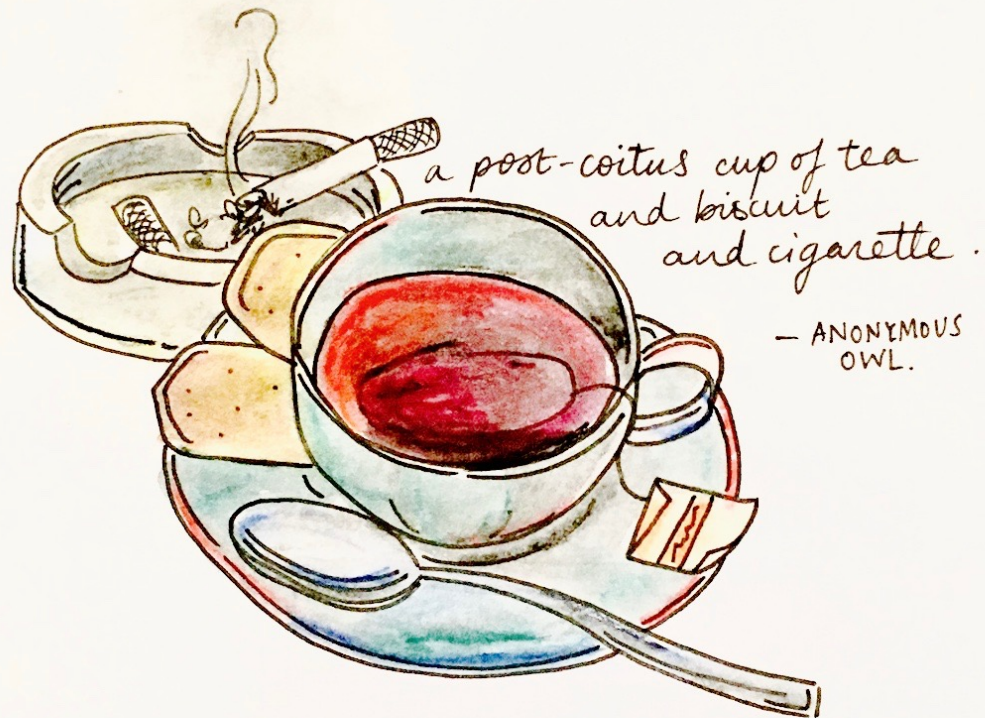 a post-coitus cup of tea
and biscuit
and cigarette.
— ANONYMOUS
OWL.